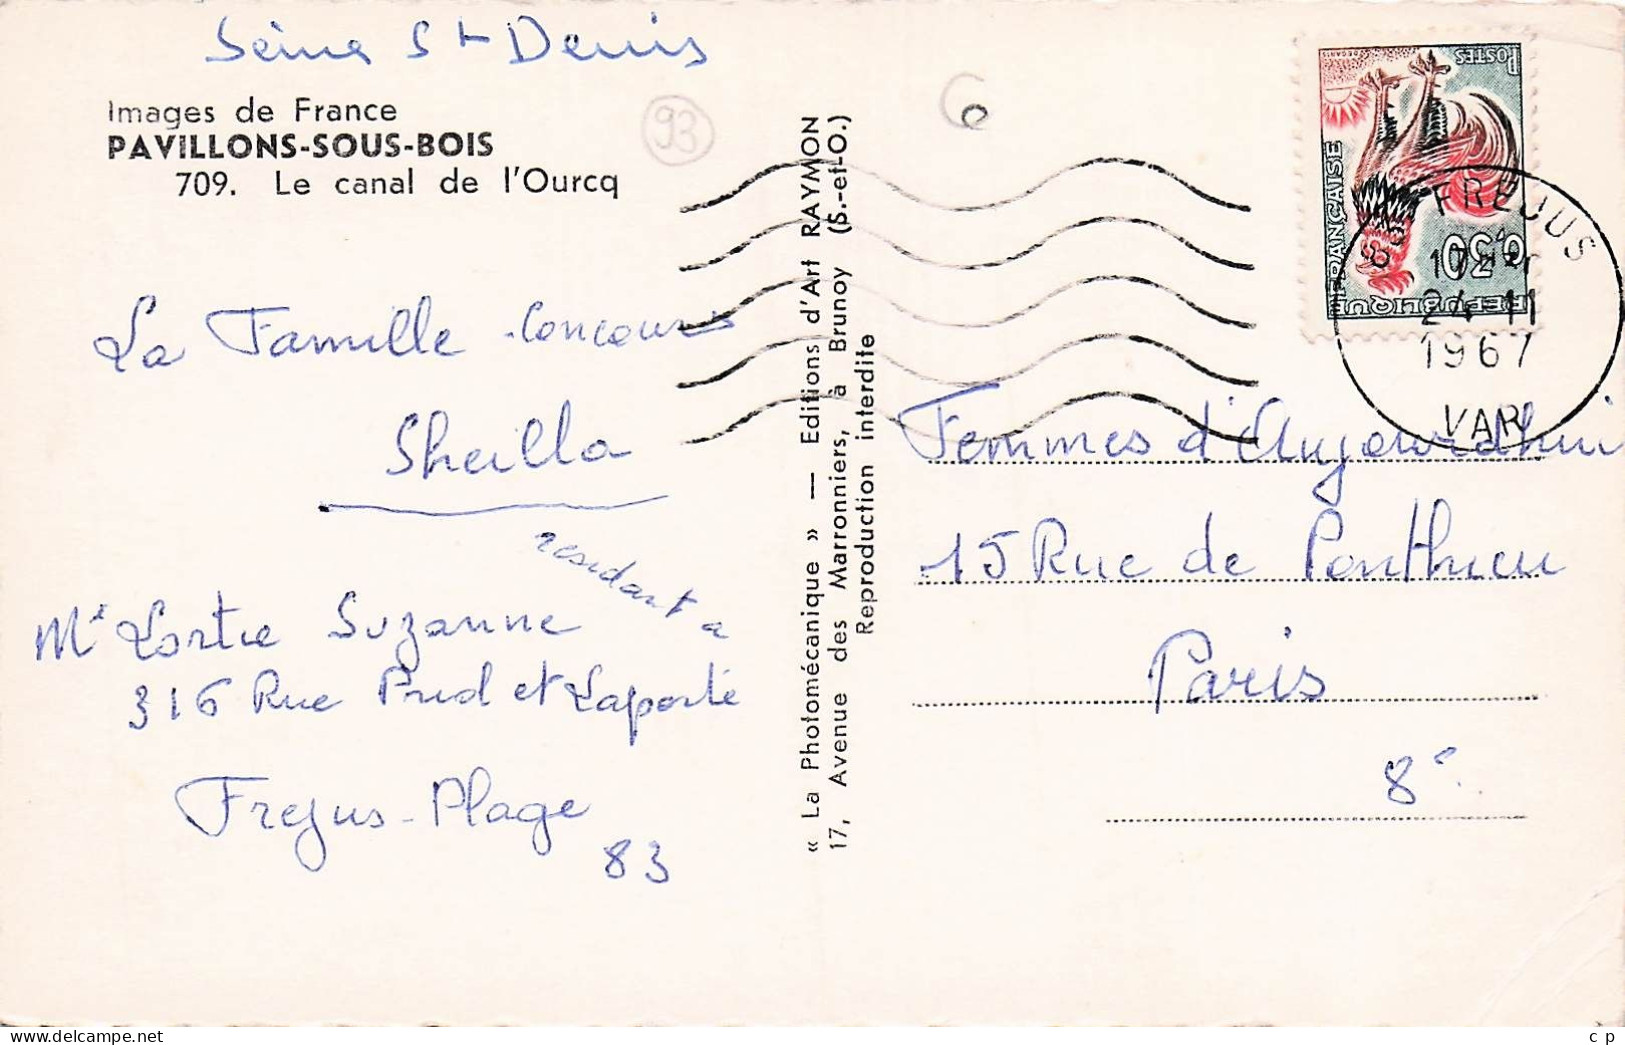 Seine St Denis
Images de France
PAVILLONS-SOUS-BOIS
709. Le canal de l'Ourcq
93
6
La Famille Concours
Sheilla
residant a
Me Lortie Suzanne
316 Rue Prud et Laporte
Frejus-Plage
83
« La Photomécanique » — Editions d'Art RAYMON
17, Avenue des Marronniers, à Brunoy (S.-et-O.)
Reproduction interdite
POSTES
REPUBLIQUE FRANÇAISE
0,30
83 FREJUS
17H
24-11
1967
VAR
Femmes d'Aujourdhui
15 Rue de Ponthieu
Paris
8e
delcampe.net
c p